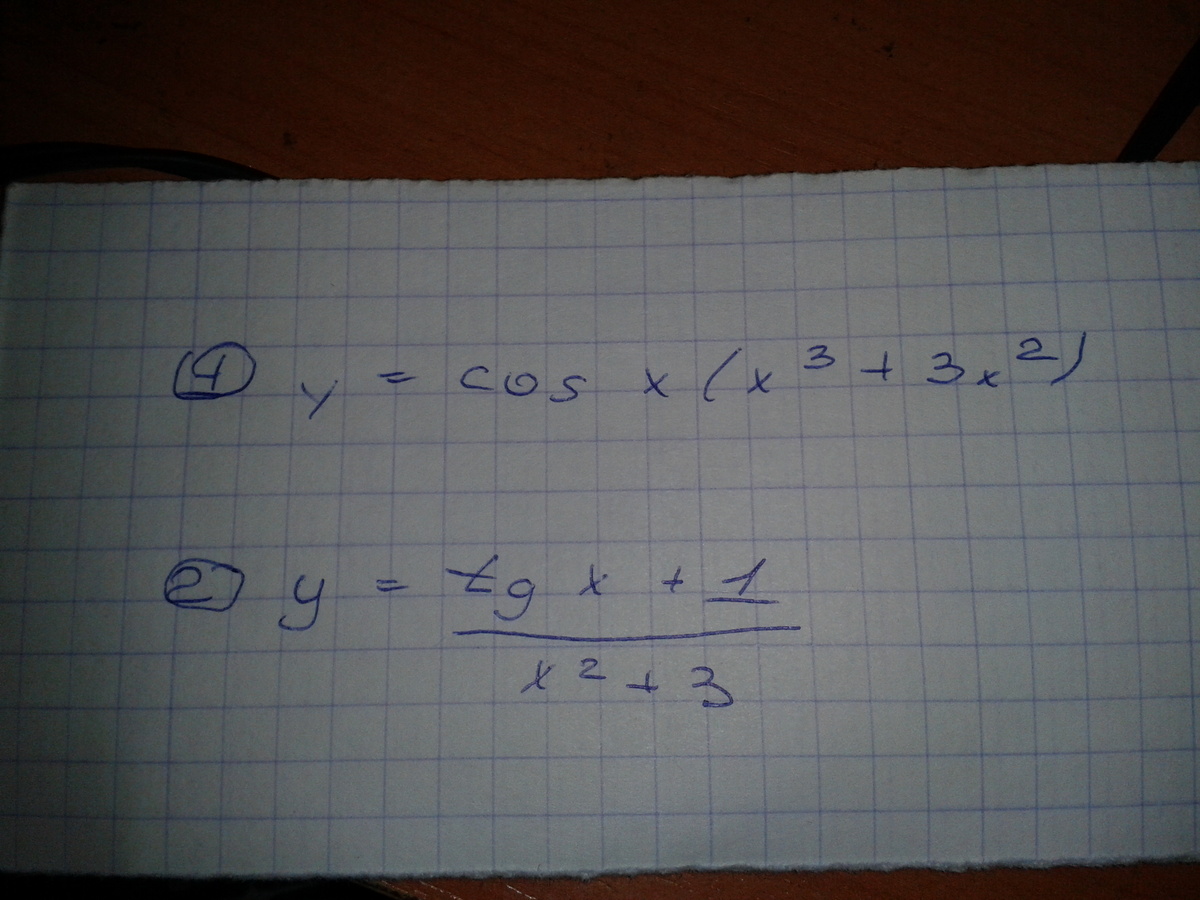 ① y = cos x (x³ + 3x²)
② y = tg x + 1
x² + 3